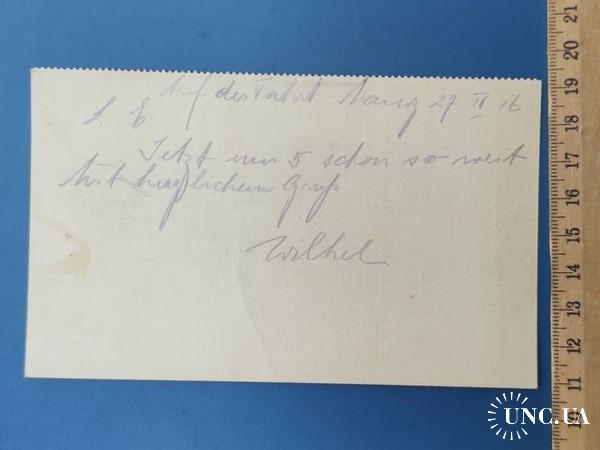 Auf der Fahrt - Mainz 27 IV 16
L E
Jetzt um 5 schon so weit
Mit herzlichem Gruß
Wilhel
21
20
19
18
17
16
15
14
13
12
11
10
UNC.UA